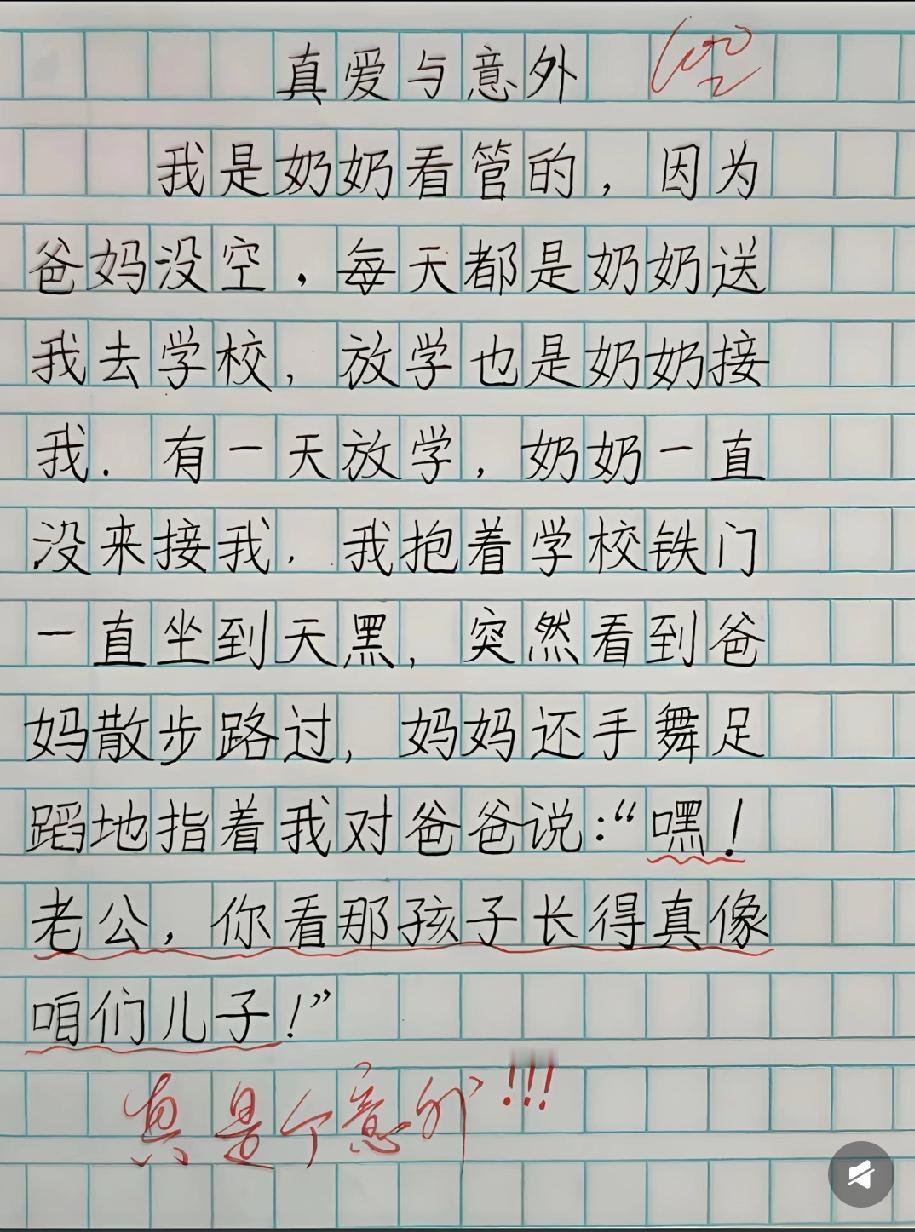 真爱与意外
我是奶奶看管的，因为
爸妈没空，每天都是奶奶送
我去学校，放学也是奶奶接
我.有一天放学，奶奶一直
没来接我.我抱着学校铁门
一直坐到天黑，突然看到爸
妈散步路过，妈妈还手舞足
蹈地指着我对爸爸说：“嘿！
老公，你看那孩子长得真像
咱们儿子！”
真是个意外!!!